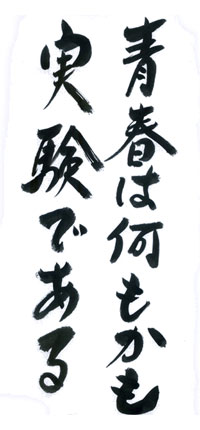 青春は何もかも
実験である